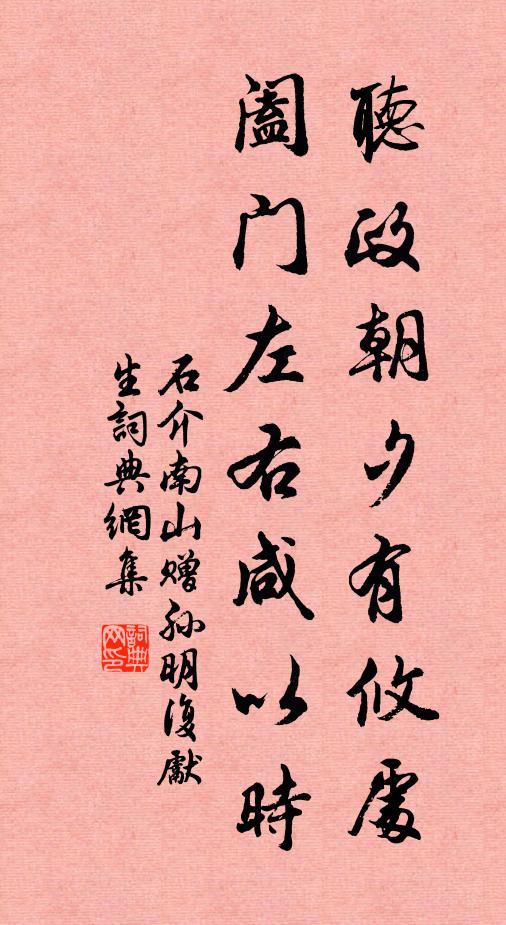 聽政朝夕有攸處
闔門左右咸以時
石介南山贈孫明復獻
生詞典網集
詞典网印